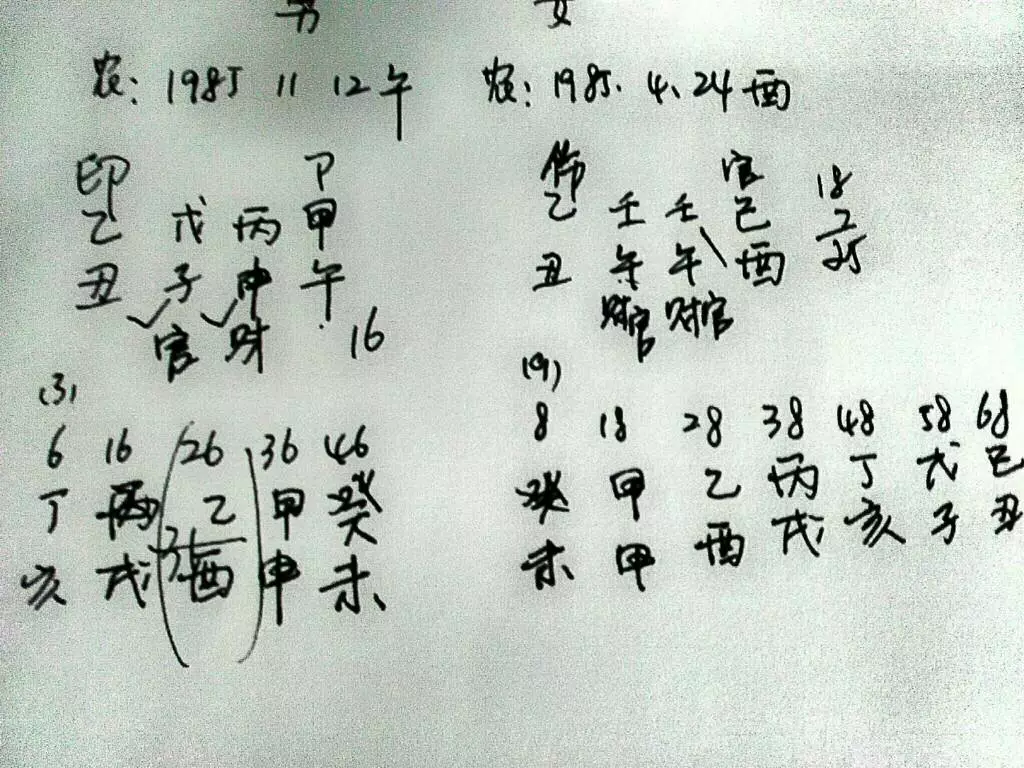 男 女
农: 1985 11 12午 农: 1985. 4. 24酉
印 卩 伤 官
乙 戊 丙 甲 乙 壬 壬 己 18
丑 子 申 午 丑 午 午 酉 25
官 财 16 财官 财官
(3) (9)
6 16 26 36 46 8 18 28 38 48 58 68
丁 丙 乙 甲 癸 癸 甲 乙 丙 丁 戊 己
亥 戌 酉 申 未 未 申 酉 戌 亥 子 丑